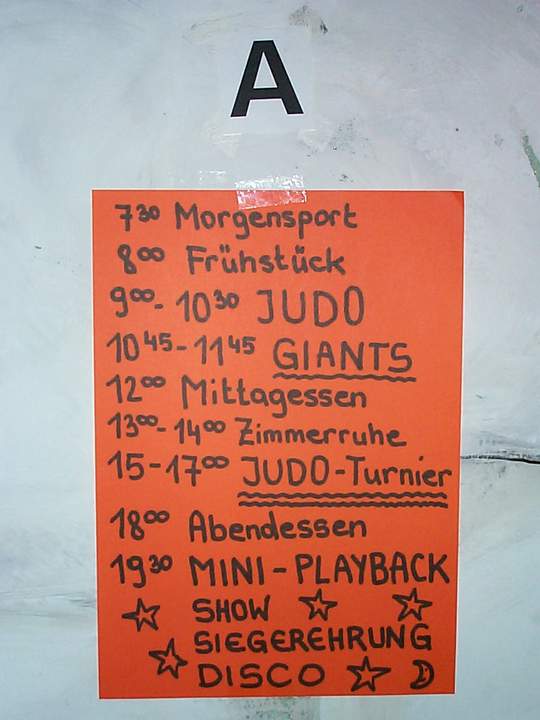 A
7³⁰ Morgensport
8⁰⁰ Frühstück
9⁰⁰- 10³⁰ JUDO
10⁴⁵-11⁴⁵ GIANTS
12⁰⁰ Mittagessen
13⁰⁰-14⁰⁰ Zimmerruhe
15-17⁰⁰ JUDO-Turnier
18⁰⁰ Abendessen
19³⁰ MINI-PLAYBACK
SHOW
SIEGEREHRUNG
DISCO